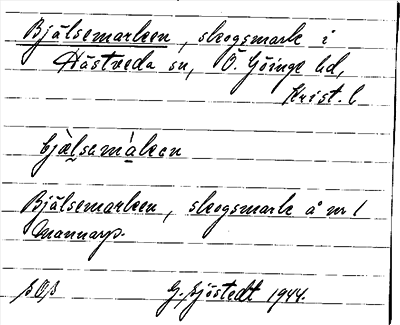 Bjälsemarken, skogsmark i
Hästveda sn, Ö. Göinge hd,
Krist. l
bjælsamàlean
Bjälsemarken, skogsmark å nr 1
Mannarp.
G. Sjöstedt 1944.